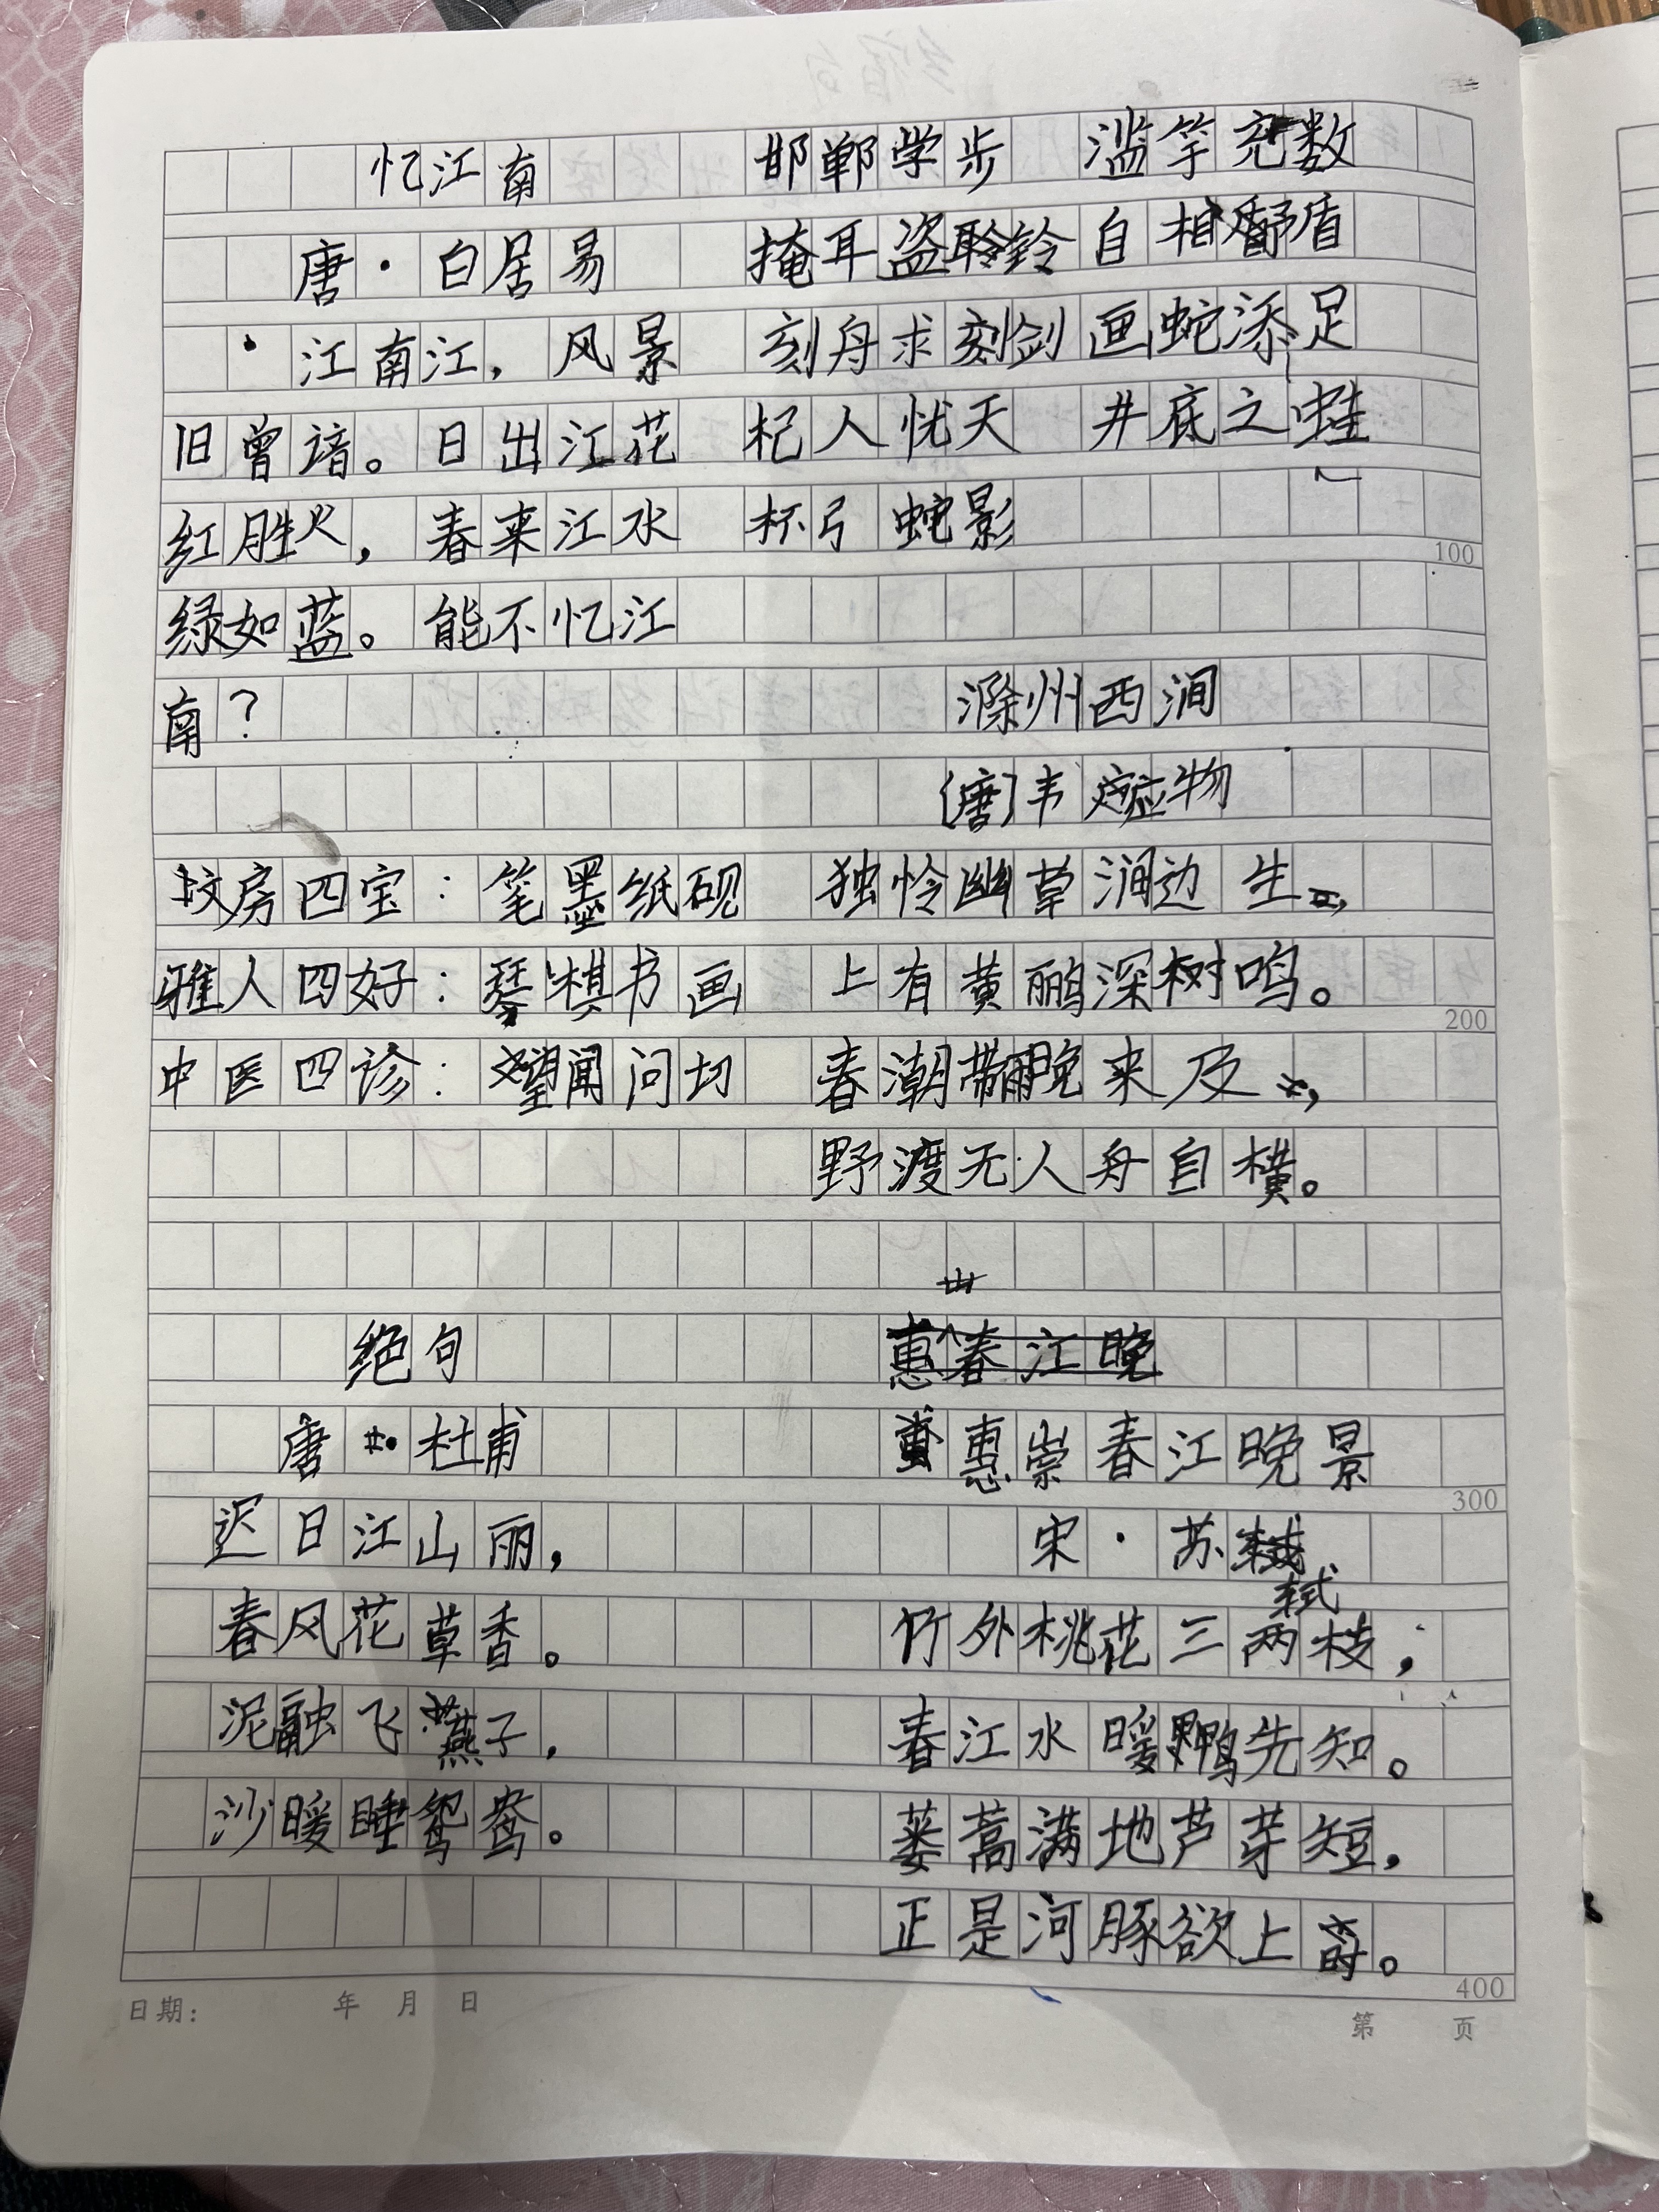 忆江南
唐·白居易
江南江，风景
旧曾谙。日出江花
红胜火，春来江水
绿如蓝。能不忆江
南？
邯郸学步 滥竽充数
掩耳盗铃 自相矛盾
刻舟求剑 画蛇添足
杞人忧天 井底之蛙
杯弓蛇影
100
文房四宝：笔墨纸砚
雅人四好：琴棋书画
中医四诊：望闻问切
滁州西涧
[唐]韦应物
独怜幽草涧边生，
上有黄鹂深树鸣。
200
春潮带雨晚来及，
野渡无人舟自横。
绝句
唐·杜甫
迟日江山丽，
春风花草香。
泥融飞燕子，
沙暖睡鸳鸯。
惠春江晚
惠崇春江晚景
300
宋·苏轼
竹外桃花三两枝，
春江水暖鸭先知。
蒌蒿满地芦芽短，
正是河豚欲上时。
400
日期： 年 月 日
第 页